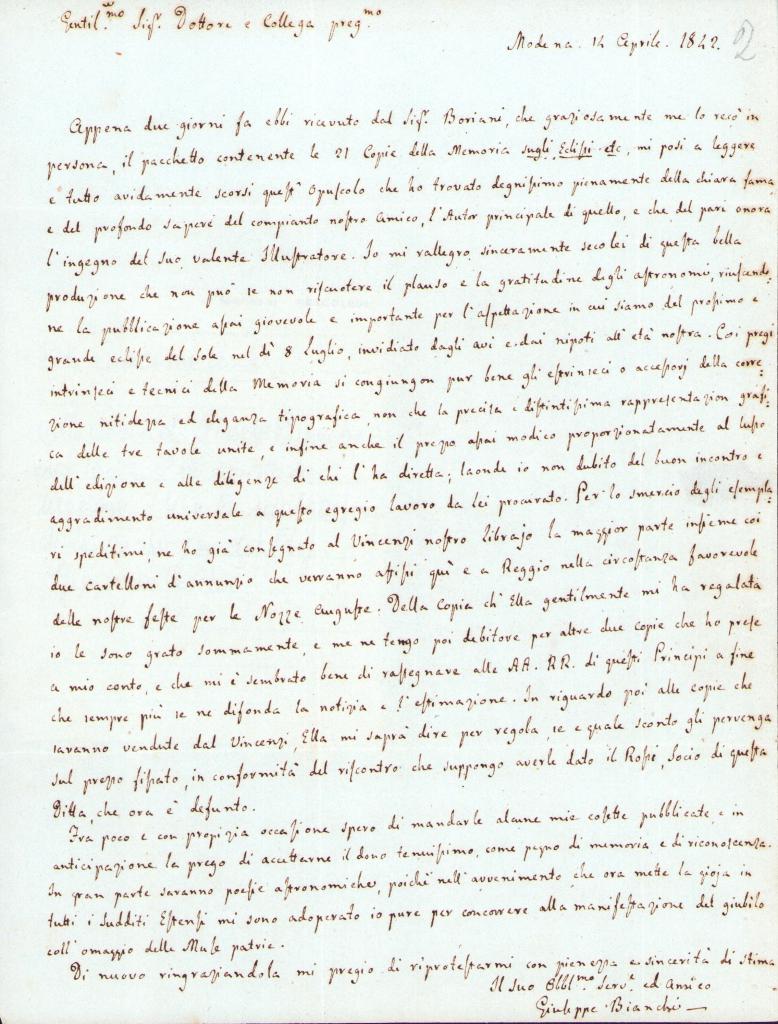 Gentil.mo Sig.r Dottore e Collega preg.mo
Modena. 14 Aprile. 1842.
2
Appena due giorni fa ebbi ricevuto dal Sig.r Boriani, che graziosamente me lo recò in
persona, il pacchetto contenente le 21 Copie della Memoria sugli Eclissi etc, mi posi a leggere
e tutto avidamente scorsi quest'opuscolo che ho trovato degnissimo pienamente della chiara fama
e del profondo sapere del compianto nostro Amico, l'Autor principale di quello, e che del pari onora
l'ingegno del suo valente Illustratore. Io mi rallegro sinceramente seco lei di questa bella
produzione che non può se non riscuotere il plauso e la gratitudine degli astronomi, riuscendo-
ne la pubblicazione assai giovevole e importante per l'aspettazione in cui siamo del prossimo e
grande eclisse del sole nel dì 8 Luglio, invidiato dagli avi e dai nipoti all'età nostra. Coi pregi
intrinseci e tecnici della Memoria si congiungon pur bene gli estrinseci o accessorj della corre-
zione nitidezza ed eleganza tipografica, non che la precisa e distintissima rappresentazion grafi-
ca delle tre tavole unite, e infine anche il prezzo assai modico proporzionatamente al lusso
dell'edizione e alle diligenze di chi l'ha diretta; laonde io non dubito del buon incontro e
aggradimento universale a questo egregio lavoro da lei procurato. Per lo smercio degli esempla-
ri speditimi, ne ho già consegnato al Vincenzi nostro librajo la maggior parte insieme coi
due cartelloni d'annunzio che verranno affissi quì e a Reggio nella circostanza favorevole
delle nostre feste per le Nozze Auguste. Della Copia ch'Ella gentilmente mi ha regalata
io le sono grato sommamente, e me ne tengo poi debitore per altre due copie che ho prese
a mio conto, e che mi è sembrato bene di rassegnare alle AA. RR. di questi Principi a fine
che sempre più se ne difonda la notizia e l'estimazione. In riguardo poi alle copie che
saranno vendute dal Vincenzi, Ella mi saprà dire per regola, se e quale sconto gli pervenga
sul prezzo fissato, in conformità del riscontro che suppongo averle dato il Rossi, Socio di questa
Ditta, che ora è defunto.
Fra poco e con propizia occasione spero di mandarle alcune mie cosette pubblicate, e in
anticipazione la prego di accettarne il dono tenuissimo, come pegno di memoria e di riconoscenza.
In gran parte saranno poesie astronomiche, poichè nell'avvenimento che ora mette la gioja in
tutti i sudditi Estensi mi sono adoperato io pure per concorrere alla manifestazione del giubilo
coll'omaggio delle Muse patrie.
Di nuovo ringraziandola mi pregio di riprotestarmi con pienezza e sincerità di stima
Il suo Obbl.mo Serv.e ed Amico
Giuseppe Bianchi